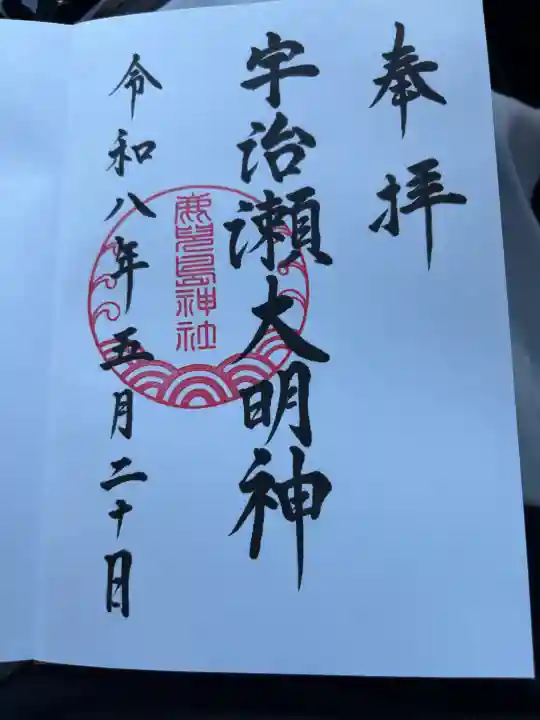 奉拝
宇治瀬大明神
鹿児島神社
令和八年五月二十日